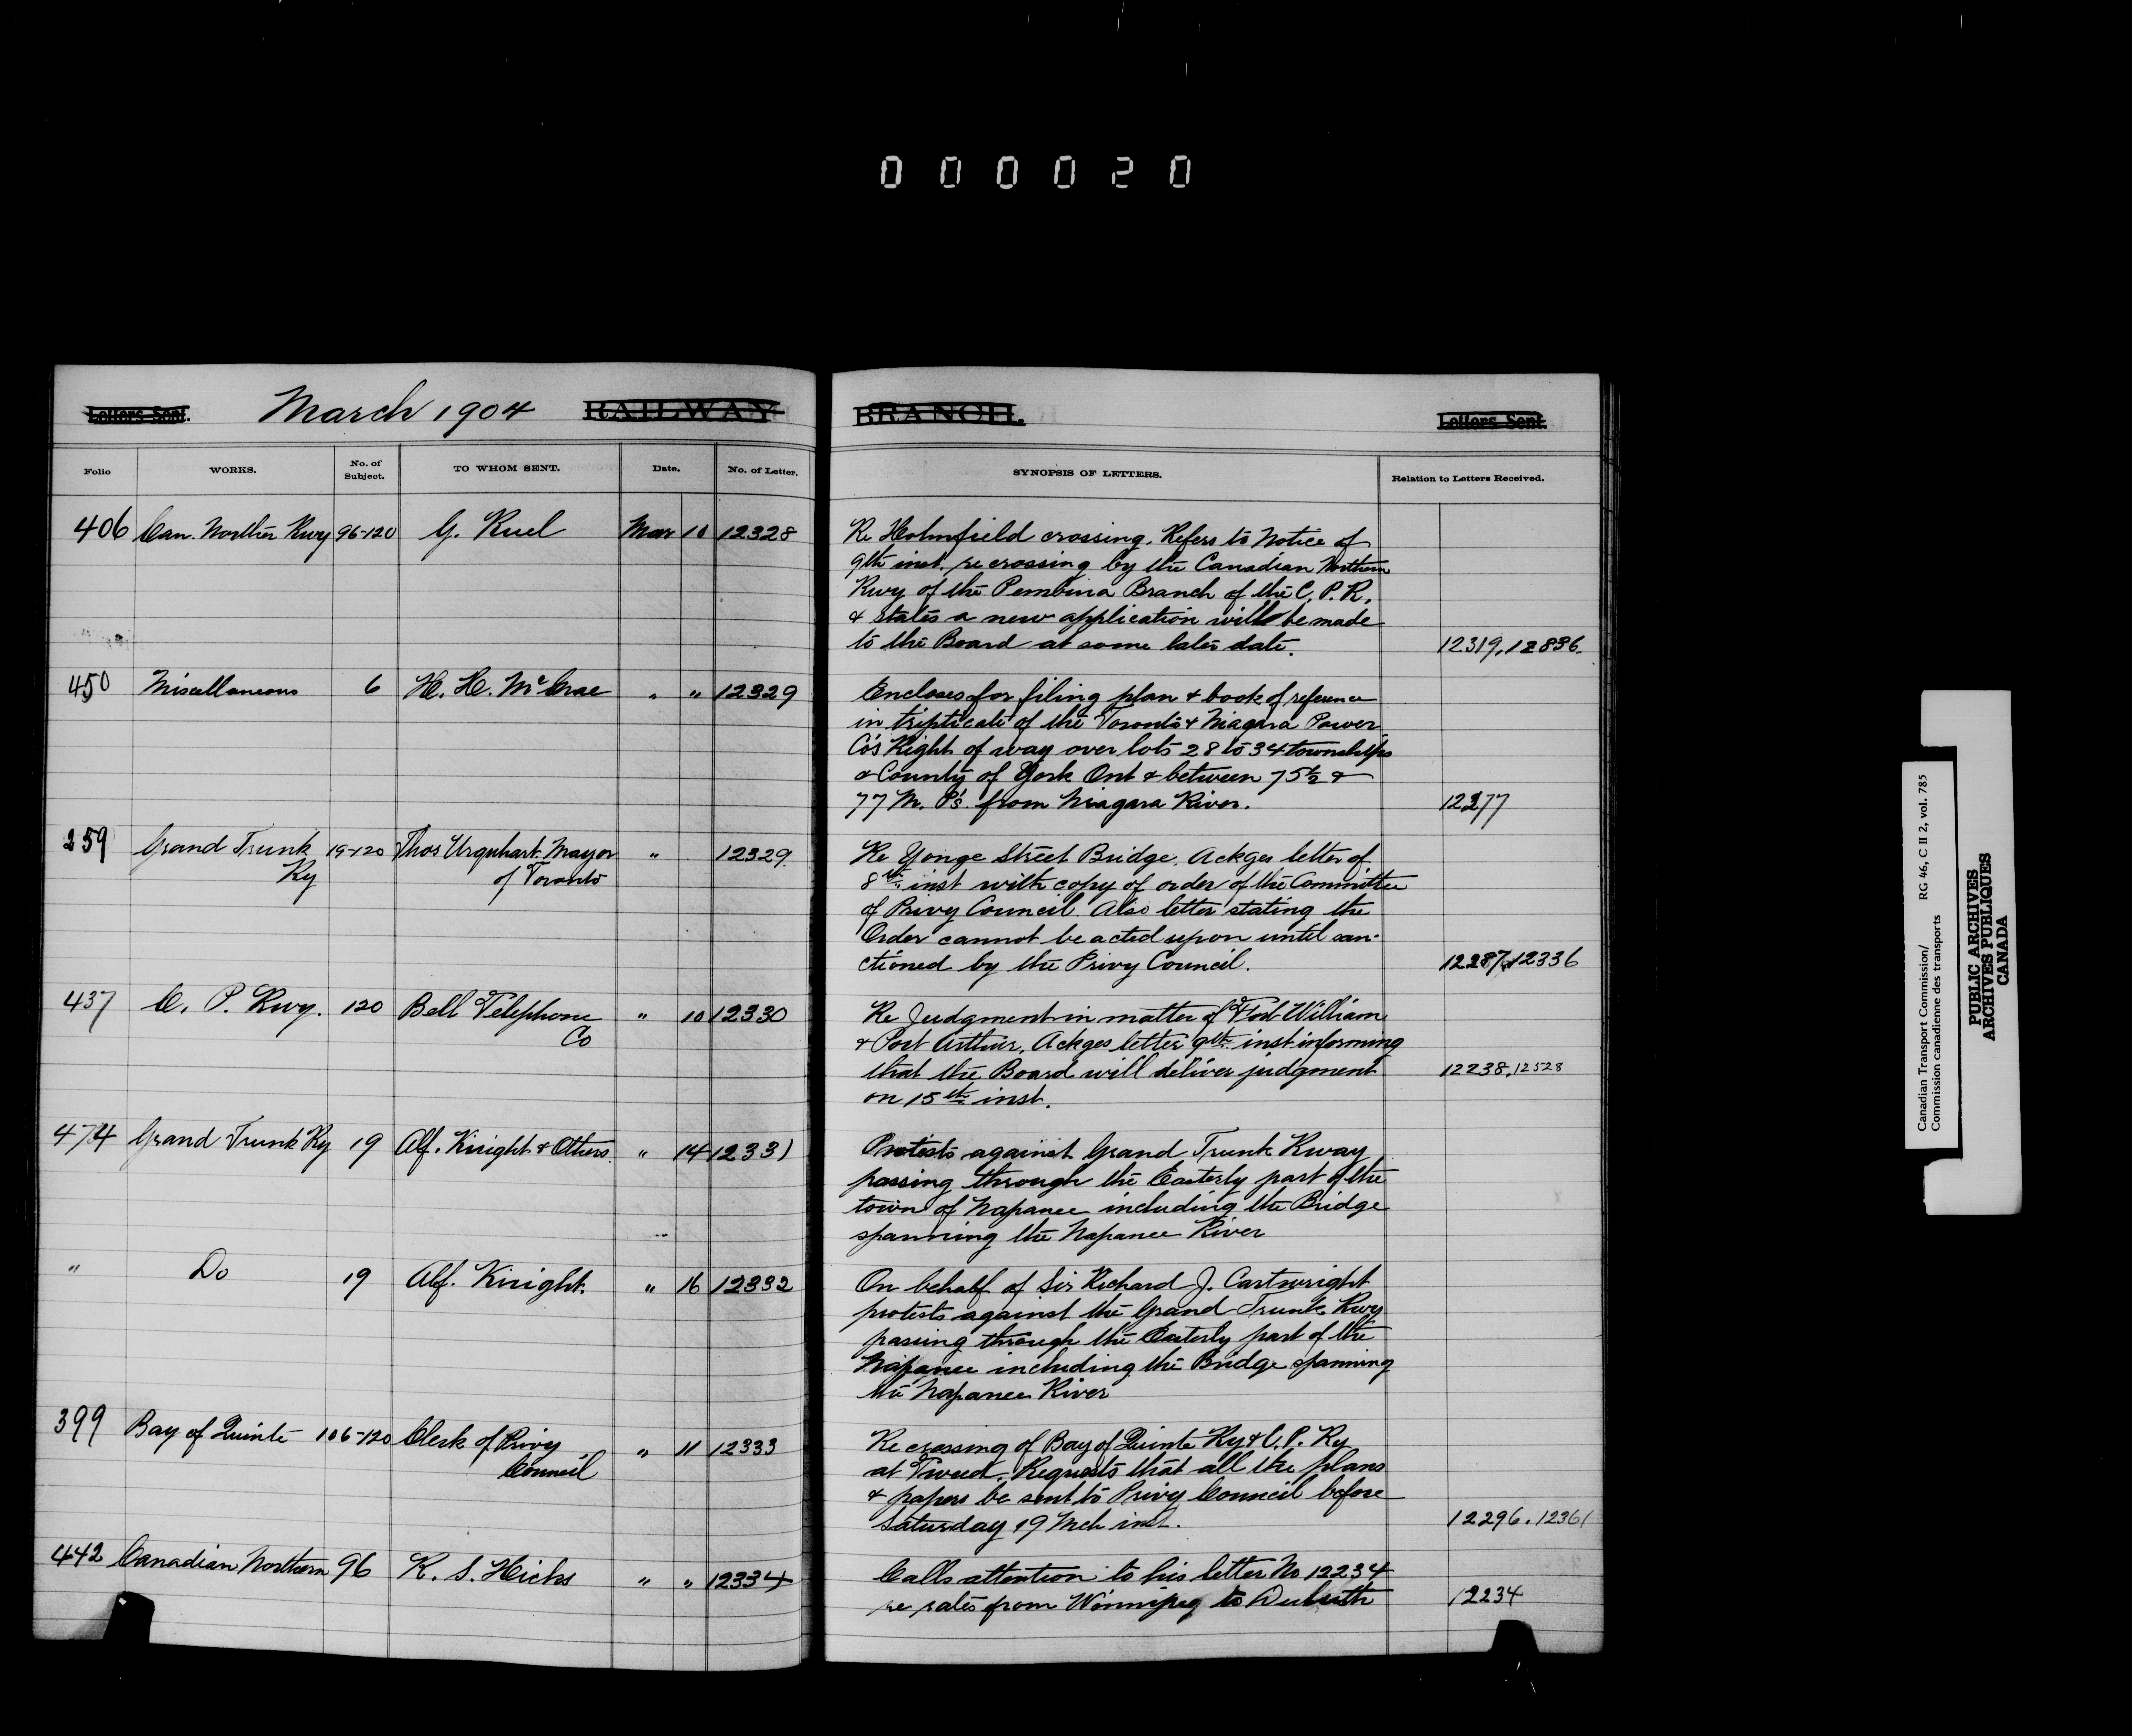 000020
Letters Sent. March 1904 RAILWAY BRANCH. Letters Sent.
Folio WORKS. No. of Subject. TO WHOM SENT. Date. No. of Letter. SYNOPSIS OF LETTERS. Relation to Letters Received.
406 Can. Northern Rwy 96-120 G. Ruel Mar 10 12328 Re Holmfield crossing. Refers to Notice of
9th inst. re crossing by the Canadian Northern
Rwy of the Pembina Branch of the C. P. R.
& states a new application will be made
to the Board at some later date. 12319, 12836.
450 Miscellaneous 6 H. H. McCrae " " 12329 Encloses for filing plan & book of reference
in triplicate of the Toronto & Niagara Power
Co's Right of way over lots 28 to 34 townships
& County of York Ont & between 75½ &
77 M. P's. from Niagara River. 12277
259 Grand Trunk 19-120 Thos Urquhart Mayor " 12329 Re Yonge Street Bridge. Ackges letter of
Ry of Toronto 8th inst with copy of order of the Committee
of Privy Council. Also letter stating the
Order cannot be acted upon until san-
ctioned by the Privy Council. 12287, 12336
437 C. P. Rwy. 120 Bell Telephone " 10 12330 Re Judgment in matter of Fort William
Co & Port Arthur. Ackges letter 9th inst informing
that the Board will deliver judgment 12238, 12528
on 15th inst.
474 Grand Trunk Ry 19 Alf. Knight & Others " 14 12331 Protests against Grand Trunk Rway
passing through the Easterly part of the
town of Napanee including the Bridge
spanning the Napanee River
" Do 19 Alf. Knight. " 16 12332 On behalf of Sir Richard J. Cartwright
protests against the Grand Trunk Rwy
passing through the Easterly part of the
Napanee including the Bridge spanning
the Napanee River
399 Bay of Quinte 106-120 Clerk of Privy " 11 12333 Re crossing of Bay of Quinte Ry & C. P. Ry
Council at Tweed. Requests that all the plans
& papers be sent to Privy Council before
Saturday 19 Mch inst. 12296. 12361
442 Canadian Northern 96 R. S. Hicks " " 12334 Calls attention to his letter No 12234
re rates from Winnipeg to Duluth 12234
Canadian Transport Commission/ RG 46, C II 2, vol. 785
Commission canadienne des transports
PUBLIC ARCHIVES
ARCHIVES PUBLIQUES
CANADA